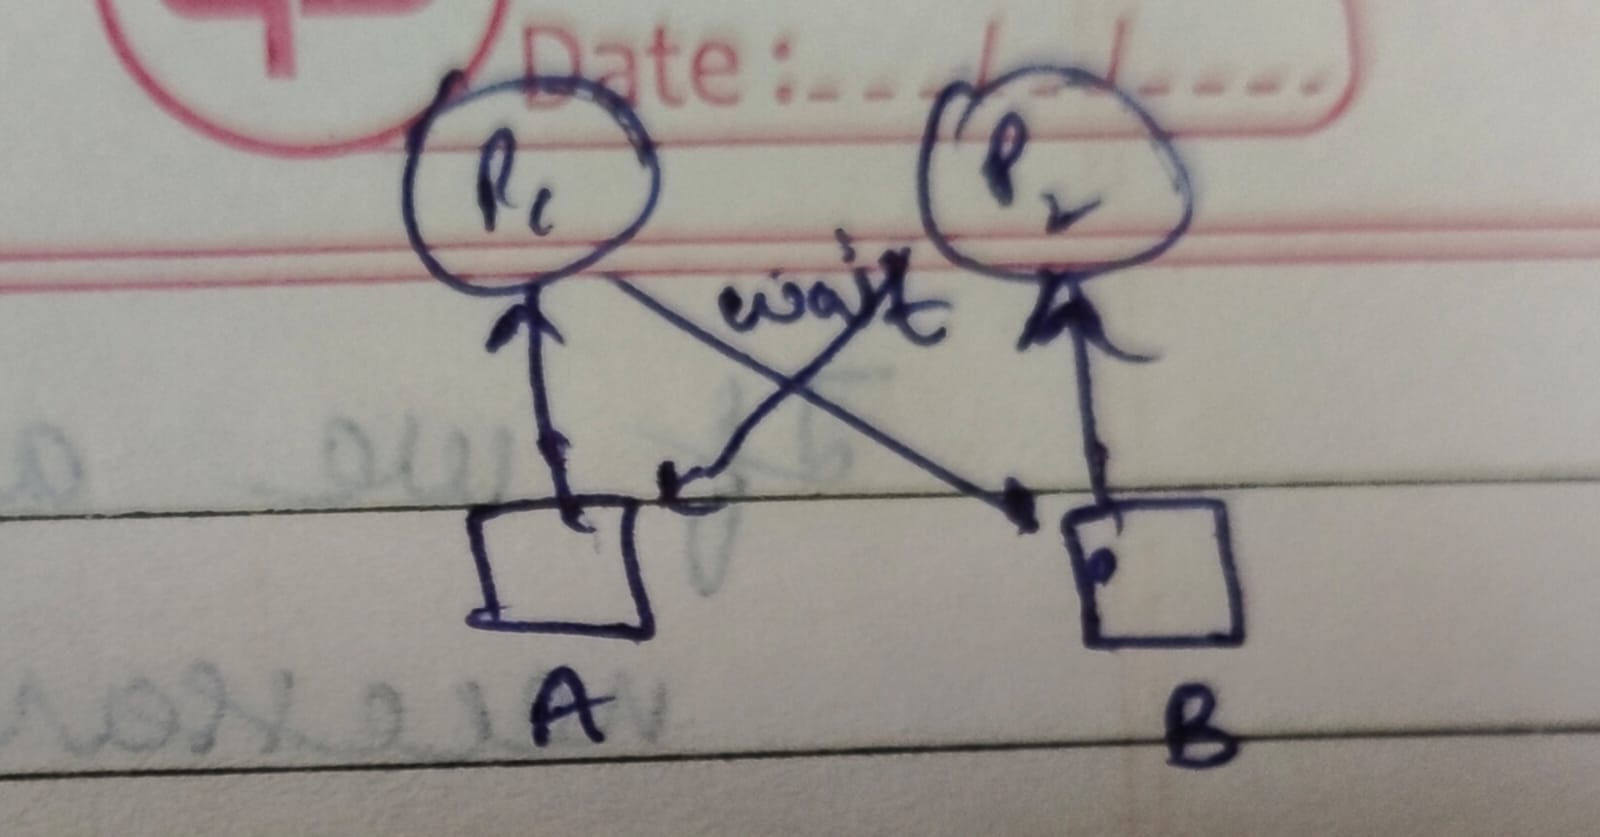 Date :
P1 P2
wait
A B